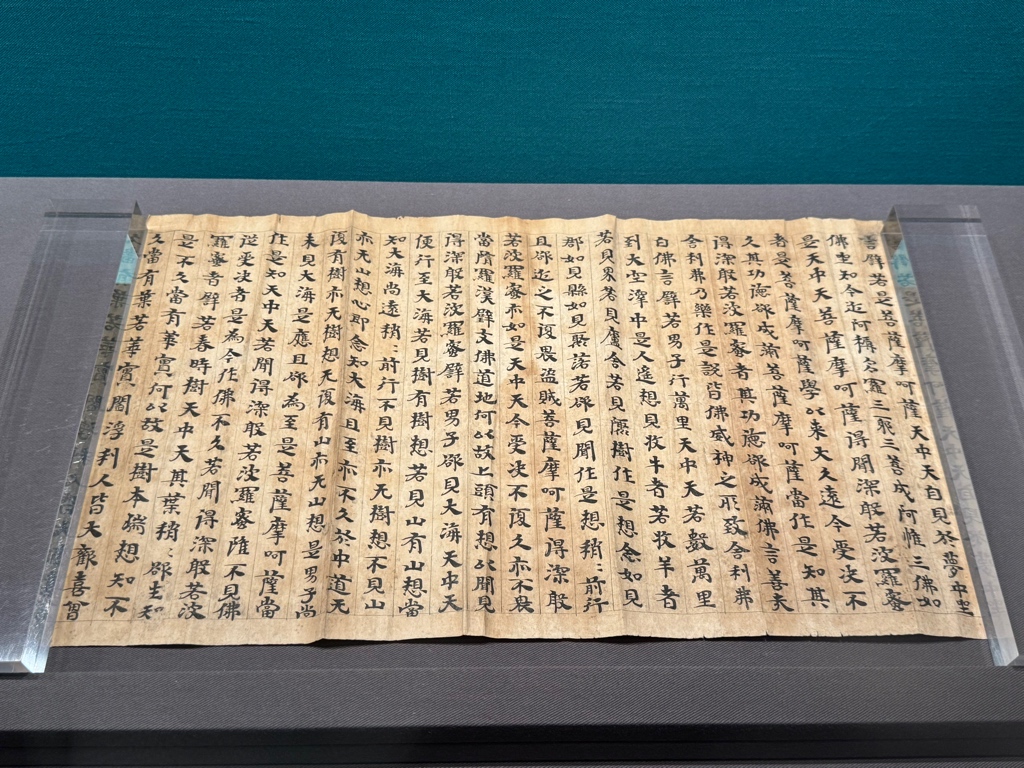 言譬若是菩薩摩呵薩天中天自見於夢中坐
佛坐知今近阿耨多羅三耶三菩成阿惟三佛如
是天中天菩薩摩呵薩得聞深般若波羅蜜
者是菩薩摩呵薩學以来大久遠今受决不
久其功德欲成滿菩薩摩呵薩當作是知其
得深般若波羅蜜者其功德欲成滿佛言善夫
舍利弗乃樂作是說皆佛威神之所致舍利弗
白佛言譬若男子行萬里天中天若數萬里者
到大空澤中是人遥想見牧牛者若牧羊者
若見界若見廬舍若見叢樹作是想念如見
郡如見縣如見聚落若欲見聞作是想稍:前行
且欲近之不復畏盜賊菩薩摩呵薩得深般
若波羅蜜亦如是天中天今受决不復久亦不畏
當墮羅漢辟支佛道地何以故上頭有想以聞見
得深般若波羅蜜譬若男子欲見大海天中天
便行至大海若見樹有樹想若見山有山想當
知大海尚遠稍:前行不見樹亦无樹想不見山
亦无山想心即念知大海且至亦不久於中道无
復有樹亦无樹想无復有山亦无山想是男子尚
未見大海是應且欲為至是菩薩摩呵薩當
作是知天中天若聞得深般若波羅蜜雖不見佛
從受决者是為今作佛不久若聞得深般若波
羅蜜者譬若春時樹天中天其葉稍:欲生知
是不久當有華實何以故是樹本瑞想知不
久當有葉若華實閻浮利人皆大歡喜曾